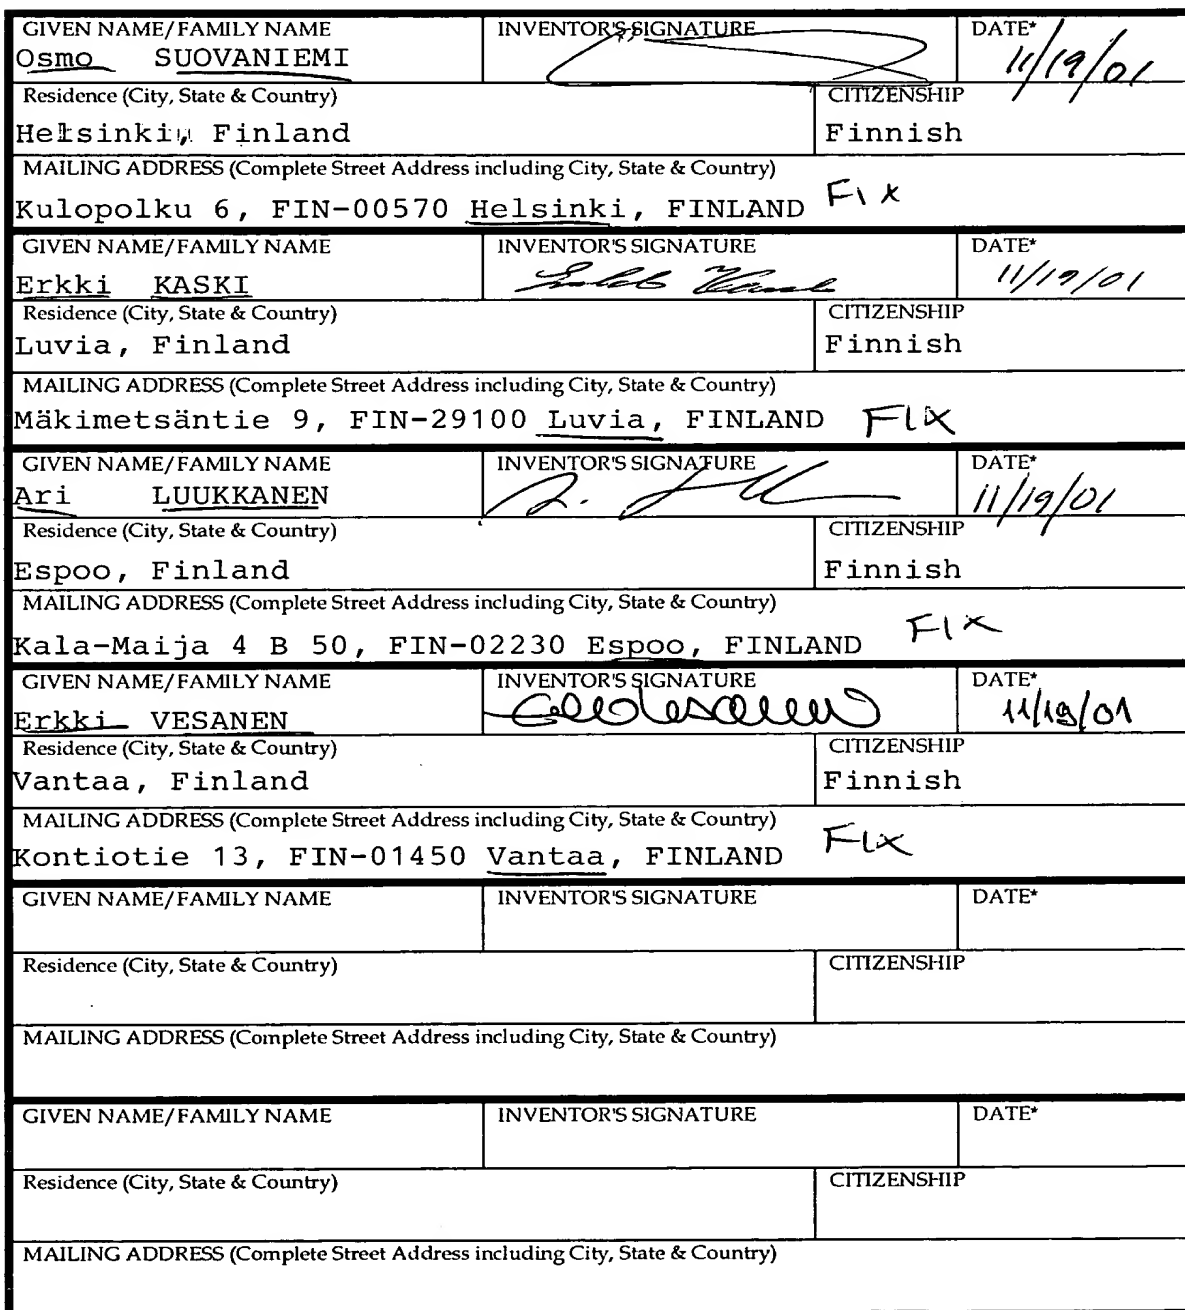 GIVEN NAME/FAMILY NAME INVENTOR'S SIGNATURE DATE*
Osmo SUOVANIEMI 11/19/01
Residence (City, State & Country) CITIZENSHIP
Helsinki, Finland Finnish
MAILING ADDRESS (Complete Street Address including City, State & Country)
Kulopolku 6, FIN-00570 Helsinki, FINLAND FIX
GIVEN NAME/FAMILY NAME INVENTOR'S SIGNATURE DATE*
Erkki KASKI 11/19/01
Residence (City, State & Country) CITIZENSHIP
Luvia, Finland Finnish
MAILING ADDRESS (Complete Street Address including City, State & Country)
Mäkimetsäntie 9, FIN-29100 Luvia, FINLAND FIX
GIVEN NAME/FAMILY NAME INVENTOR'S SIGNATURE DATE*
Ari LUUKKANEN 11/19/01
Residence (City, State & Country) CITIZENSHIP
Espoo, Finland Finnish
MAILING ADDRESS (Complete Street Address including City, State & Country)
Kala-Maija 4 B 50, FIN-02230 Espoo, FINLAND FIX
GIVEN NAME/FAMILY NAME INVENTOR'S SIGNATURE DATE*
Erkki VESANEN 11/19/01
Residence (City, State & Country) CITIZENSHIP
Vantaa, Finland Finnish
MAILING ADDRESS (Complete Street Address including City, State & Country)
Kontiotie 13, FIN-01450 Vantaa, FINLAND FIX
GIVEN NAME/FAMILY NAME INVENTOR'S SIGNATURE DATE*
Residence (City, State & Country) CITIZENSHIP
MAILING ADDRESS (Complete Street Address including City, State & Country)
GIVEN NAME/FAMILY NAME INVENTOR'S SIGNATURE DATE*
Residence (City, State & Country) CITIZENSHIP
MAILING ADDRESS (Complete Street Address including City, State & Country)